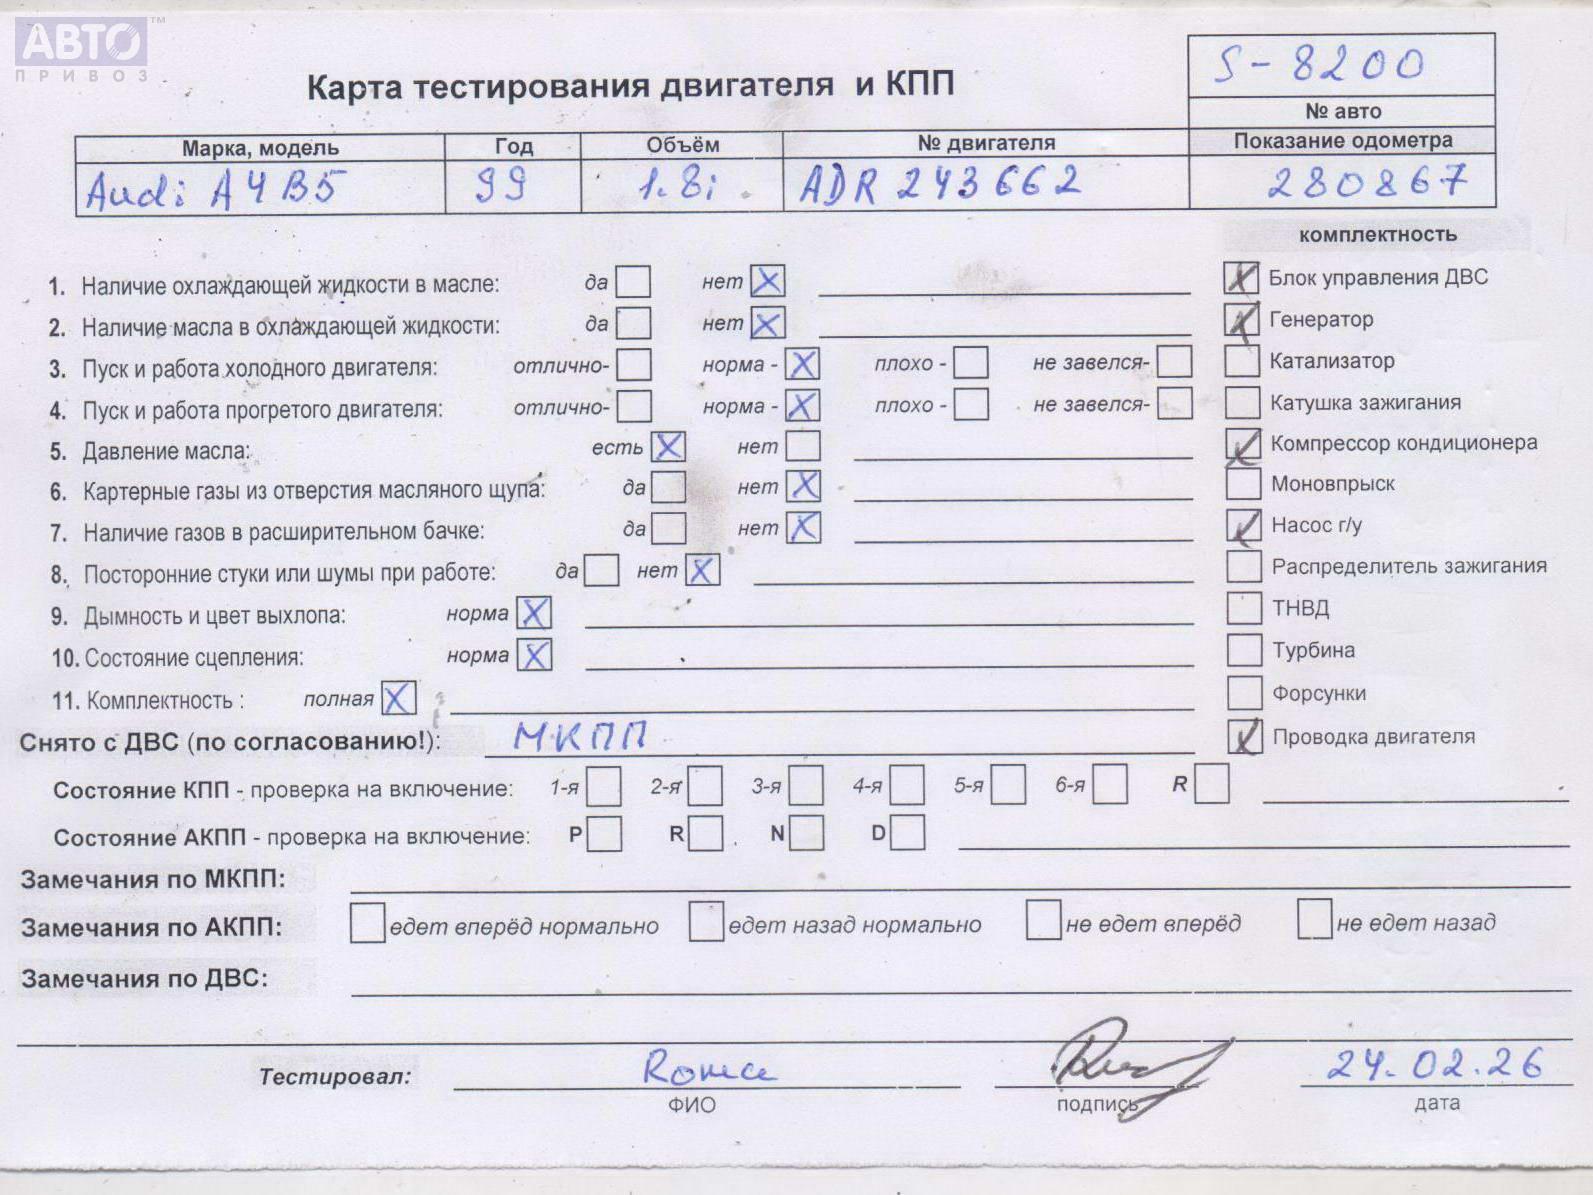 АВТО™
ПРИВОЗ
S-8200
Карта тестирования двигателя и КПП
№ авто
Марка, модель Год Объём № двигателя Показание одометра
Audi A4 B5 99 1.8i ADR 243662 280867
комплектность
1. Наличие охлаждающей жидкости в масле: да нет X Блок управления ДВС X
2. Наличие масла в охлаждающей жидкости: да нет X Генератор X
3. Пуск и работа холодного двигателя: отлично- норма - X плохо - не завелся- Катализатор
4. Пуск и работа прогретого двигателя: отлично- норма - X плохо - не завелся- Катушка зажигания
5. Давление масла: есть X нет Компрессор кондиционера X
6. Картерные газы из отверстия масляного щупа: да нет X Моновпрыск
7. Наличие газов в расширительном бачке: да нет X Насос г/у X
8. Посторонние стуки или шумы при работе: да нет X Распределитель зажигания
9. Дымность и цвет выхлопа: норма X ТНВД
10. Состояние сцепления: норма X Турбина
11. Комплектность : полная X Форсунки
Снято с ДВС (по согласованию!): МКПП Проводка двигателя X
Состояние КПП - проверка на включение: 1-я 2-я 3-я 4-я 5-я 6-я R
Состояние АКПП - проверка на включение: P R N D
Замечания по МКПП:
Замечания по АКПП: едет вперёд нормально едет назад нормально не едет вперёд не едет назад
Замечания по ДВС:
Тестировал: Рома 24.02.26
ФИО подпись дата